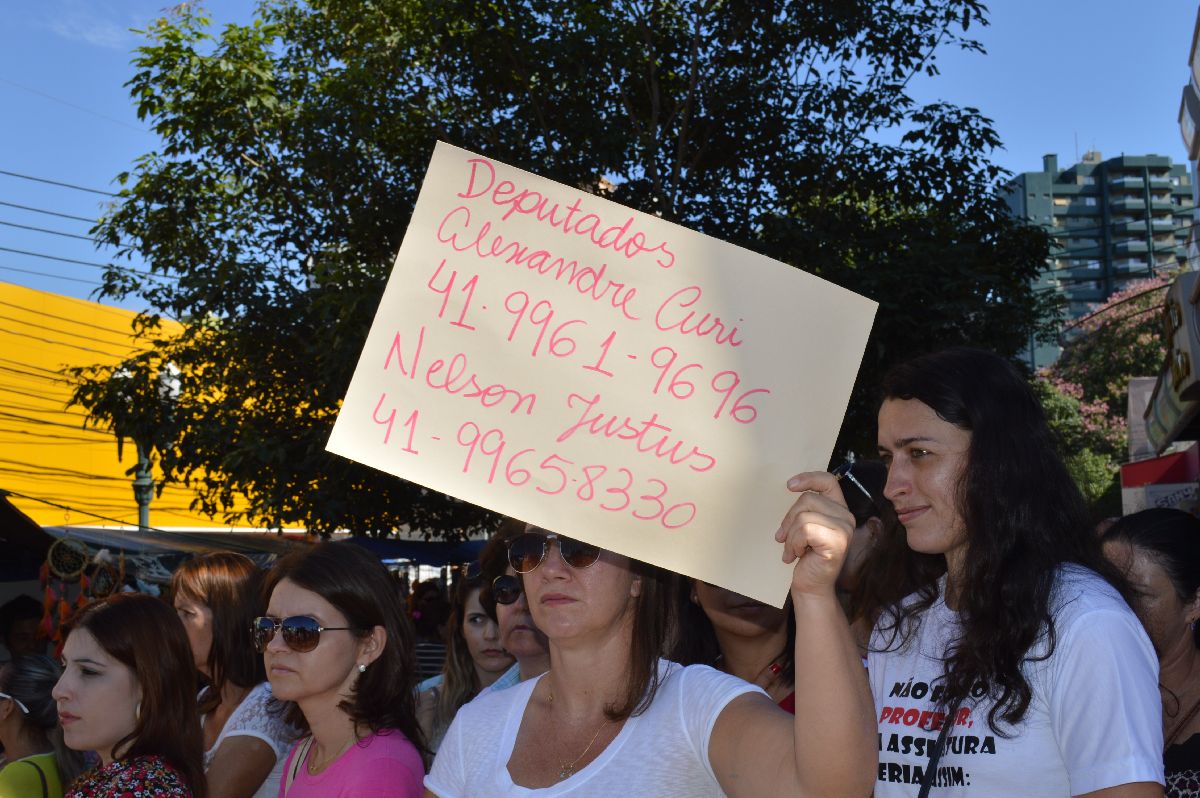 Deputados
Alexandre Curi
41.9961-9696
Nelson Justus
41-9965-8330
NÃO
PROFE
R,
ASSI
TURA
ERIA
SSIM: